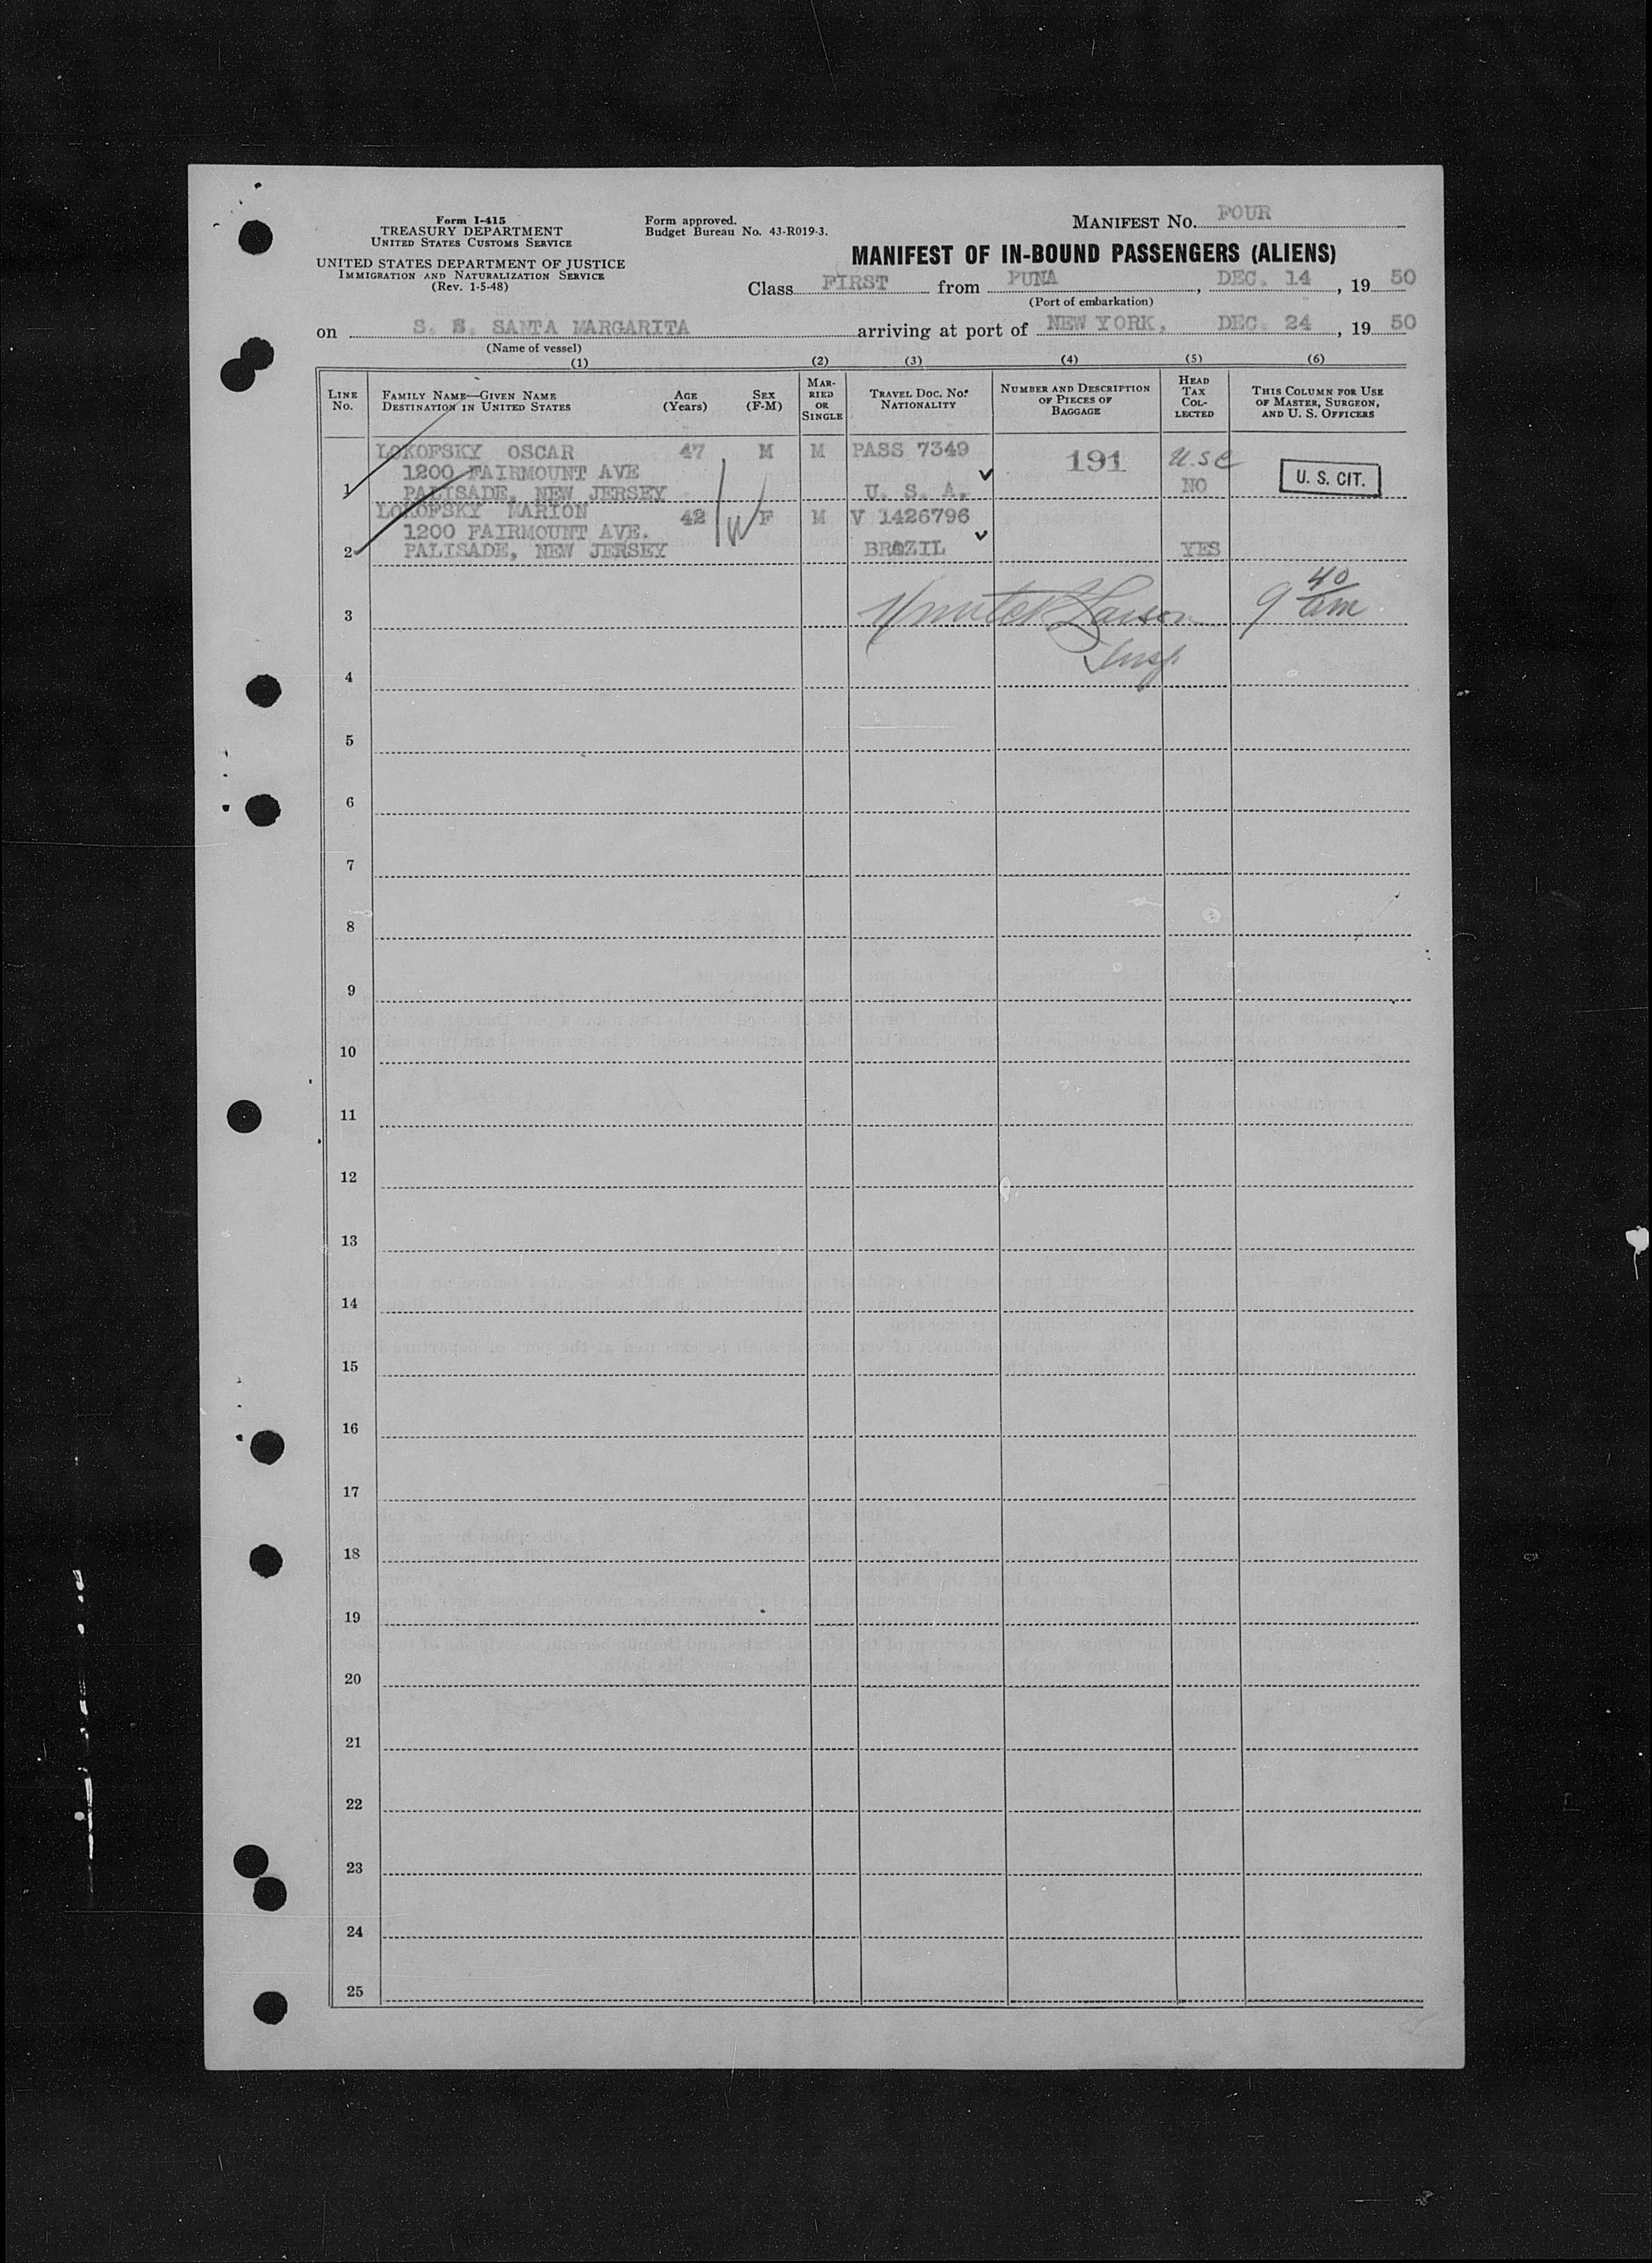 Form I-415
TREASURY DEPARTMENT
UNITED STATES CUSTOMS SERVICE
UNITED STATES DEPARTMENT OF JUSTICE
IMMIGRATION AND NATURALIZATION SERVICE
(Rev. 1-5-48)
Form approved.
Budget Bureau No. 43-R019-3.
MANIFEST NO. FOUR
MANIFEST OF IN-BOUND PASSENGERS (ALIENS)
Class FIRST from PUNA, DEC. 14, 19 50
(Port of embarkation)
on S. S. SANTA MARGARITA arriving at port of NEW YORK, DEC. 24, 19 50
(Name of vessel)
(1) (2) (3) (4) (5) (6)
LINE No. FAMILY NAME—GIVEN NAME DESTINATION IN UNITED STATES AGE (Years) SEX (F-M) MARRIED OR SINGLE TRAVEL DOC. NO. NATIONALITY NUMBER AND DESCRIPTION OF PIECES OF BAGGAGE HEAD TAX COLLECTED THIS COLUMN FOR USE OF MASTER, SURGEON, AND U. S. OFFICERS
LOKOFSKY OSCAR 47 M M PASS 7349 191 U.S.C
1200 FAIRMOUNT AVE
1 PALISADE, NEW JERSEY U. S. A. NO U. S. CIT.
LOKOFSKY MARION 42 W F M V 1426796
1200 FAIRMOUNT AVE.
2 PALISADE, NEW JERSEY BRAZIL YES
3 Larson 9 40 am
Insp
4
5
6
7
8
9
10
11
12
13
14
15
16
17
18
19
20
21
22
23
24
25